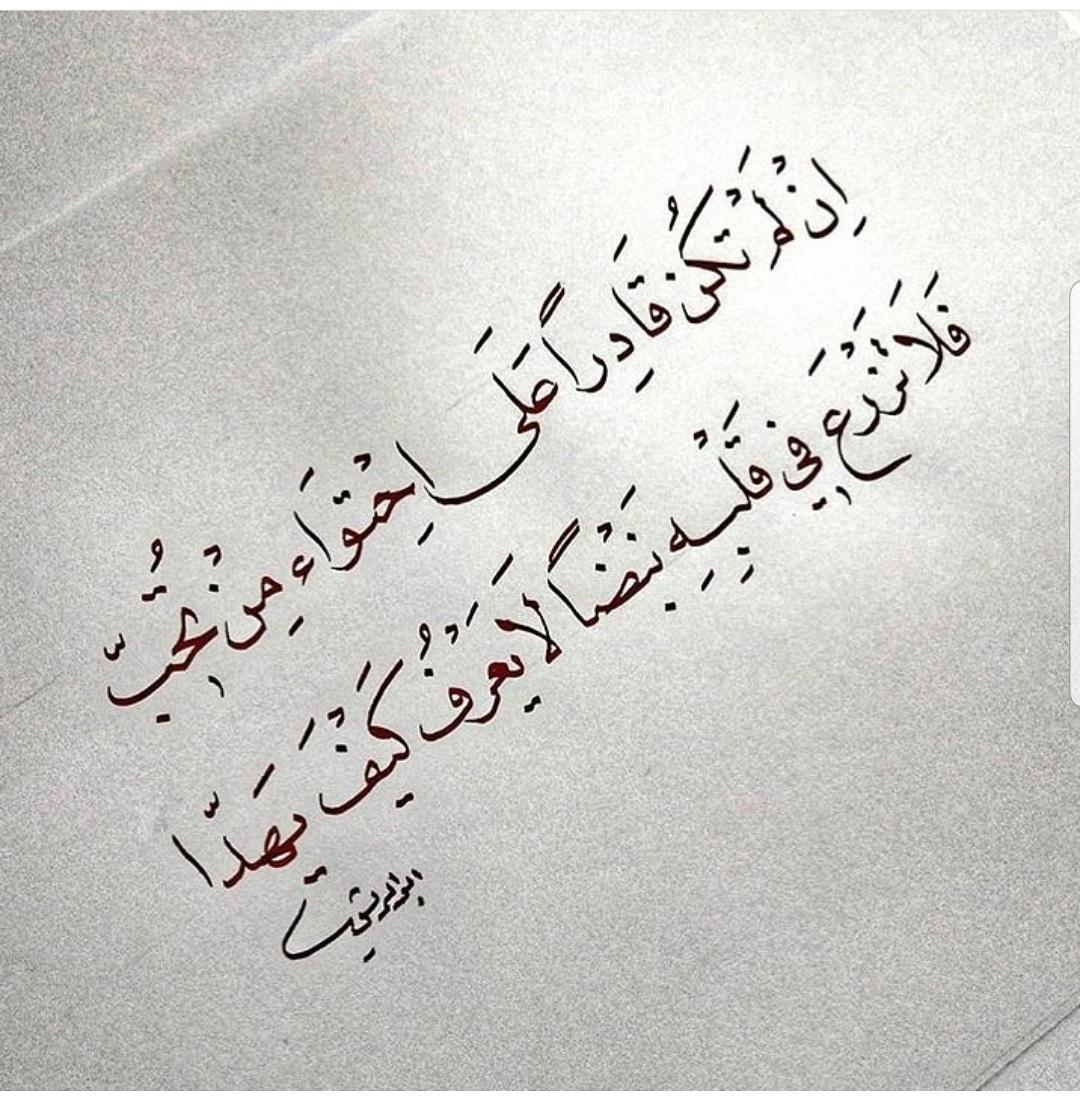 إِنْ لَمْ تَكُنْ قَادِراً عَلَى احِتْوَاءِ مِنْ تُحِبّ
فَلَا تَزْرَعْ فِي قَلْبِهِ نَبْضاً لَا يَعْرَفُ كَيْفَ يَهَدّا